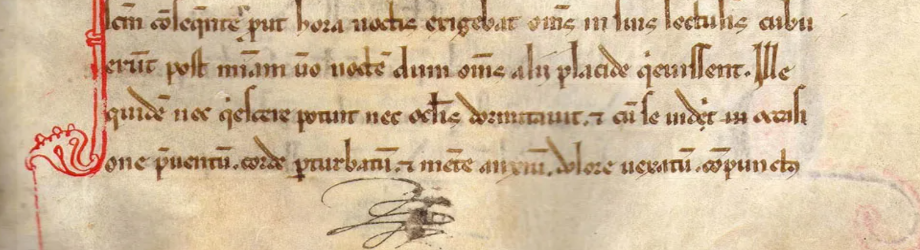 lcm̄ cōseq̄nter put hora noctis exigebat om̄s in suis lectulis cubu
erūt post mīam ū̄o noctē dum om̄s alii placide q̇evissent. Ille
quidē nec q̇escere potuit nec oclīs dormitavit. ⁊ cū se vidēt in occasi
one p̄ventū. corde ꝑturbatū. ⁊ mēte anxiū. dolore vexatū. cōpuncto